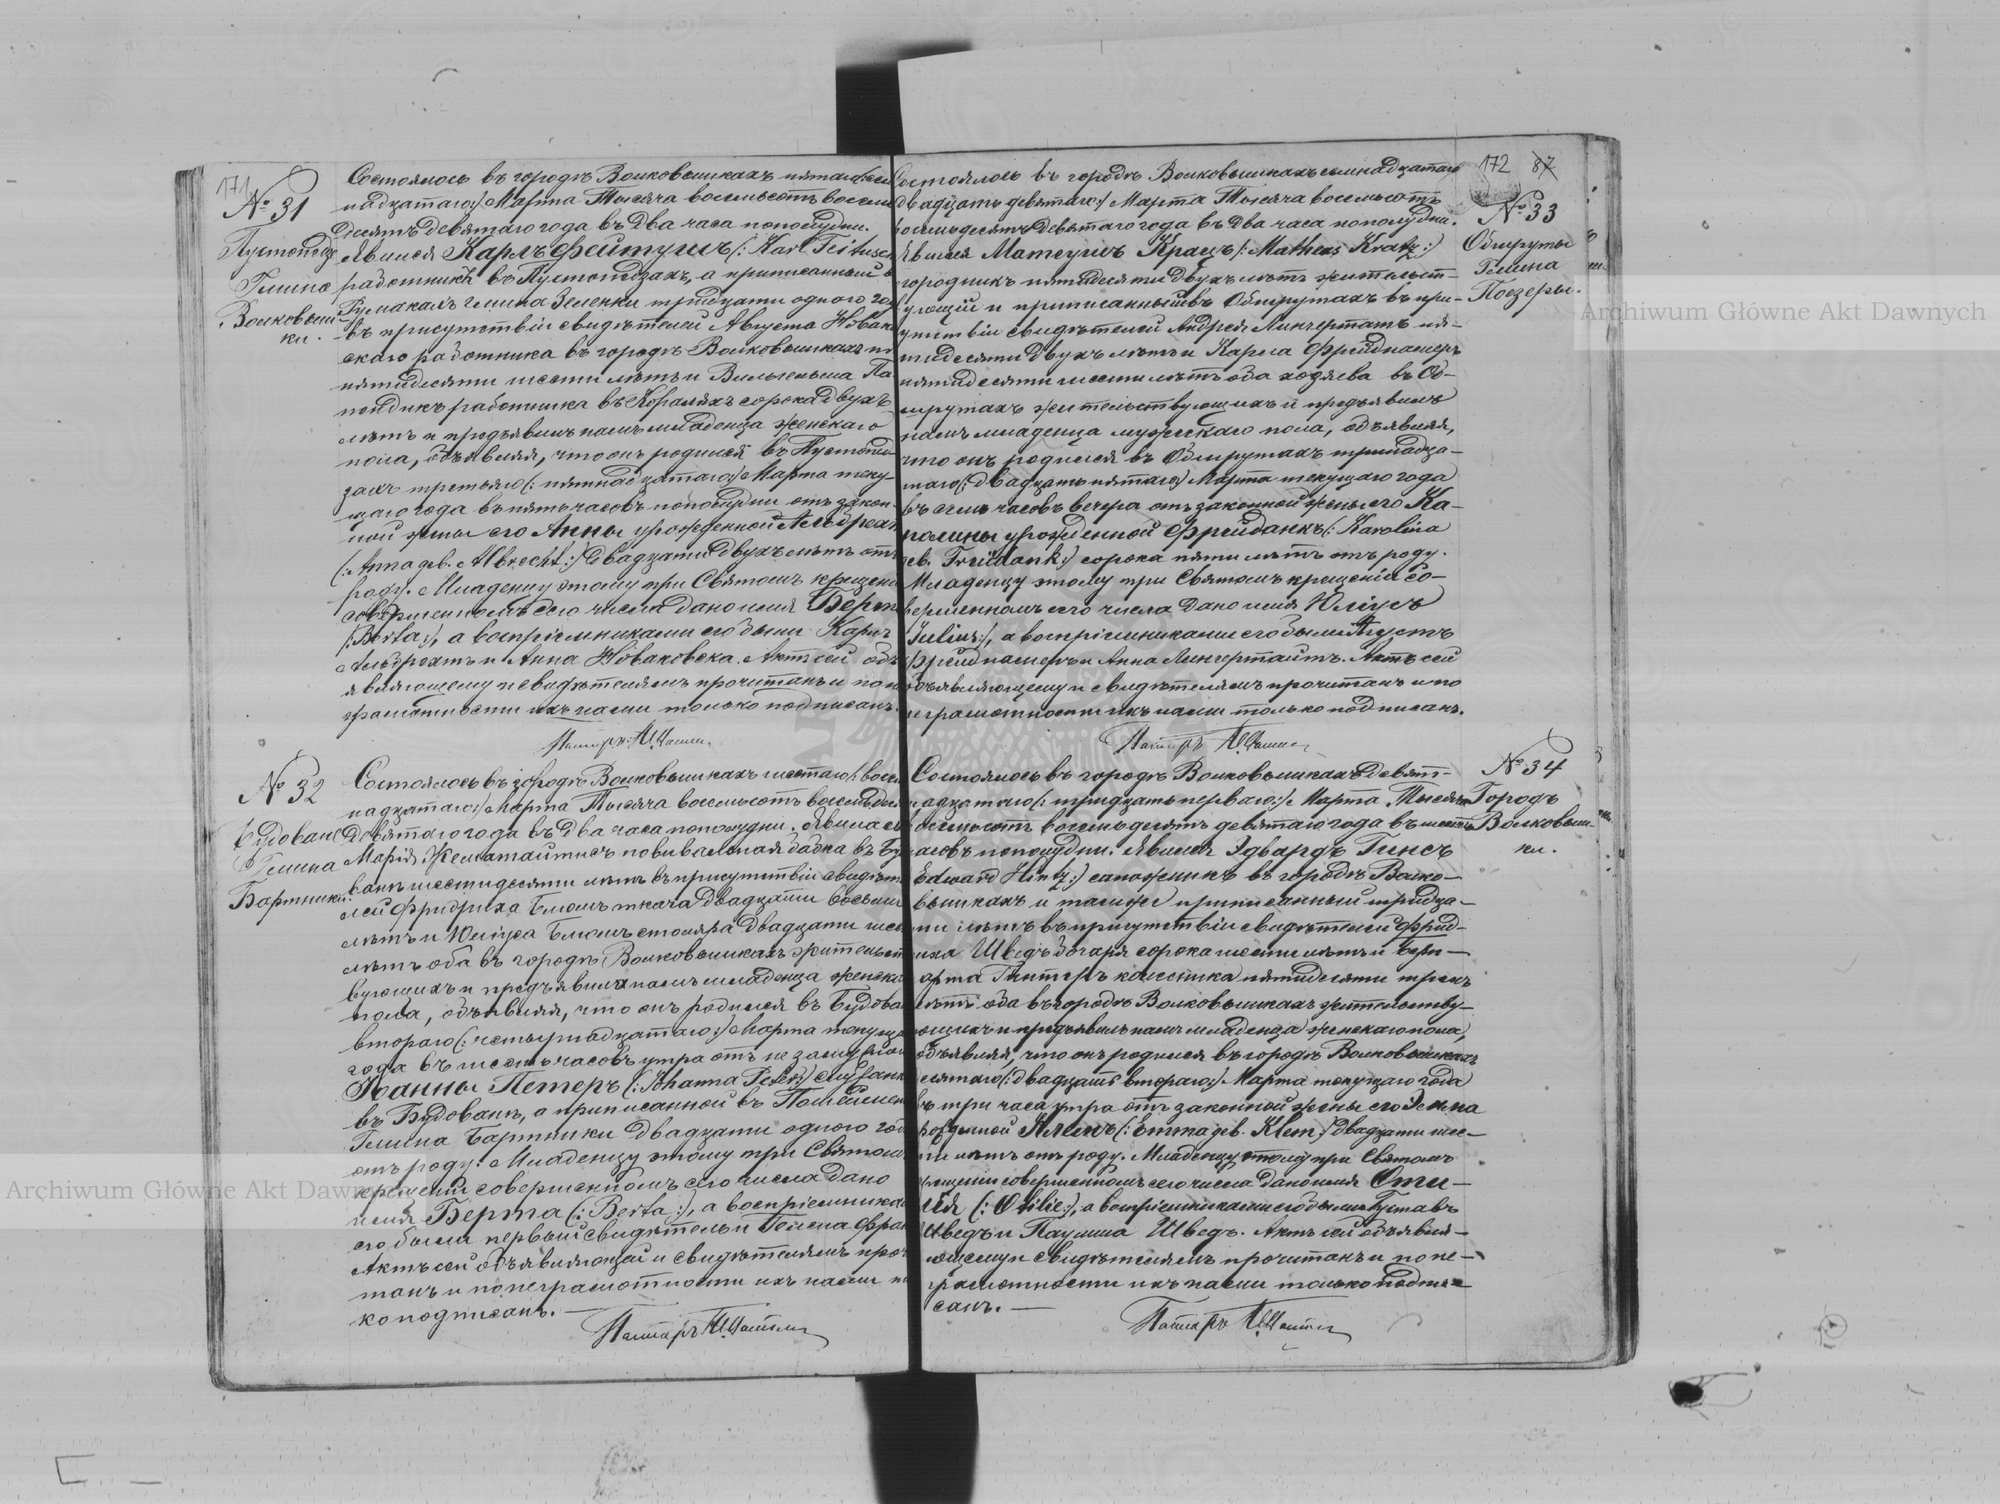 171
№ 31
Пустопедзе
Гмина
Волковыш-
ки.
Состоялось въ городѣ Волковышкахъ пятаго (:сем
надцатаго:) Марта Тысяча восемьсотъ восемь
десятъ девятаго года въ два часа пополудни.
Явился Карлъ Фейтушъ (: Karl Feitusch
работникъ въ Пустопедзахъ, а приписанный въ
гмина Зеленки тридцати одного го
въ присутствіи свидѣтелей Августа Новаков
скаго работника въ городѣ Волковышкахъ
пятидесяти шести лѣтъ и Вильгельма Па
работника въ сорока двухъ
лѣтъ и предъявилъ намъ младенца женскаго
пола, объявляя, что онъ родился въ Пустопед
захъ третьяго (: пятнадцатаго:) Марта теку-
щаго года въ пять часовъ пополудни отъ закон-
ной жены его Анны урожденной Альбрехтъ
(: Anna geb. Albrecht:) двадцати двухъ лѣтъ отъ
роду. Младенцу этому при Святомъ крещеніи
совершенномъ сего числа дано имя Берта
(: Berta:), а воспріемниками его были Карлъ
Альбрехтъ и Анна Новаковска. Актъ сей объ
являющему и свидѣтелямъ прочитанъ и по не
грамотности ихъ нами только подписанъ.
Пасторъ
№ 32
Будоване
Гмина
Бартники.
Состоялось въ городѣ Волковышкахъ шестаго (: восем
надцатаго:) Марта Тысяча восемьсотъ восемьдесятъ
девятаго года въ два часа пополудни. Явилась
Марія повивальная бабка въ Будо
ванѣ шестидесяти лѣтъ въ присутствіи свидѣте
лей Фридриха Блюмъ ткача двадцати восьми
лѣтъ и Юліуса Блюмъ столяра двадцати шести
лѣтъ оба въ городѣ Волковышкахъ жительст
вующихъ и предъявила намъ младенца женска
пола, объявляя, что онъ родился въ Будова
втораго (: четырнадцатаго:) Марта текуща
года въ шесть часовъ утра отъ незамужной
Іоанны Петеръ (: Johanna Peter:) служанк
въ Будованѣ, а приписанной въ
Гмина Бартники двадцати одного года
отъ роду. Младенцу этому при Святомъ
крещеніи совершенномъ сего числа дано
имя Берта (: Berta :), а воспріемникам
его были первый свидѣтель и Гелена Фран
Актъ сей объявляющей и свидѣтелямъ проч
танъ и по неграмотности ихъ нами то
ко подписанъ. —
Пасторъ
172 87
№ 33
Обшруты
Гмина
Поезеры.
Состоялось въ городѣ Волковышкахъ семнадцатаго
двадцать девятаго:) Марта Тысяча восемьсотъ
восемьдесятъ девятаго года въ два часа пополудни.
Явился Матеушъ Крацъ (: Matheas Kratz :)
огородникъ пятидесяти двухъ лѣтъ жительст-
вующій и приписанный въ Обшрутахъ въ при-
сутствіи свидѣтелей Андрея Лингертатъ пя-
тидесяти двухъ лѣтъ и Карла Фрейдпамеръ
пятидесяти шести лѣтъ оба хозяева въ Об-
шрутахъ жительствующихъ и предъявилъ
намъ младенца мужескаго пола, объявляя,
что онъ родился въ Обшрутахъ тринадца-
таго (: двадцать пятаго:) Марта текущаго года
въ семь часовъ вечера отъ законной жены его Ка-
ролины урожденной Фрейданкъ (: Karolina
geb. Freudank:) сорока пяти лѣтъ отъ роду.
Младенцу этому при Святомъ крещеніи со-
вершенномъ сего числа дано имя Юліусъ
Julius:), а воспріемниками его были Августъ
и Анна Лингертайтъ. Актъ сей
объявляющему и свидѣтелямъ прочитанъ и по
неграмотности ихъ нами только подписанъ.
Пасторъ
№ 34
Городъ
Волковыш-
ки.
Состоялось въ городѣ Волковышкахъ девят-
надцатаго (: тридцать перваго:) Марта Тысяча
восемьсотъ восемьдесятъ девятаго года въ шесть
часовъ пополудни. Явился Эдвардъ Гинсъ
Edward Hintz:) сапожникъ въ городѣ Волко-
вышкахъ и тамъ же приписанный тридца-
ти лѣтъ въ присутствіи свидѣтелей Фрид-
риха Шведъ бочаря сорока шести лѣтъ и Берн-
арта Гинтеръ колесника пятидесяти трехъ
лѣтъ оба въ городѣ Волковышкахъ жительству-
ющихъ и предъявилъ намъ младенца женскаго пола,
объявляя, что онъ родился въ городѣ Волковышкахъ
десятаго (: двадцать втораго:) Марта текущаго года
въ три часа утра отъ законной жены его Эмма
рожденной Клемъ (: Emma geb. Klem:) двадцати шес-
ти лѣтъ отъ роду. Младенцу этому при Святомъ
крещеніи совершенномъ сего числа дано имя Оти-
лія (: Otilie:), а воспріемниками его были Густавъ
Шведъ и Паулина Шведъ. Актъ сей объявля-
ющему и свидѣтелямъ прочитанъ и по не-
грамотности ихъ нами только подпи-
санъ. —
Пасторъ
Archiwum Główne Akt Dawnych
Archiwum Główne Akt Dawnych